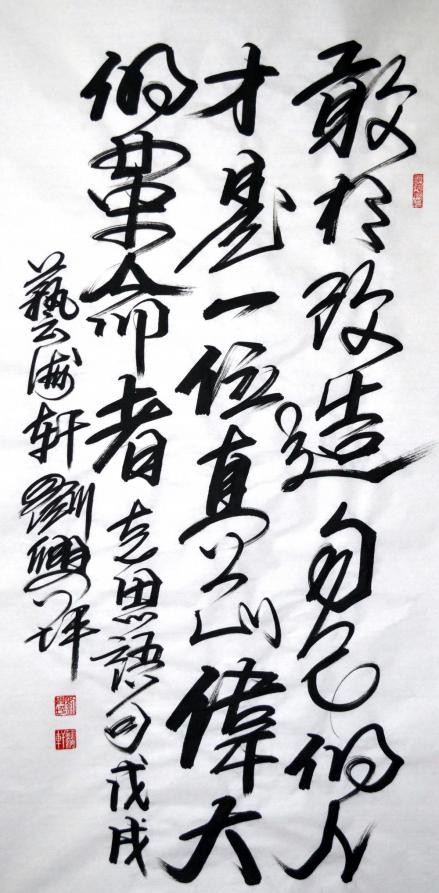 敢於改造自己的人
才是一位真正偉大
的革命者 思語句戊戌
藝海轩劉興坪